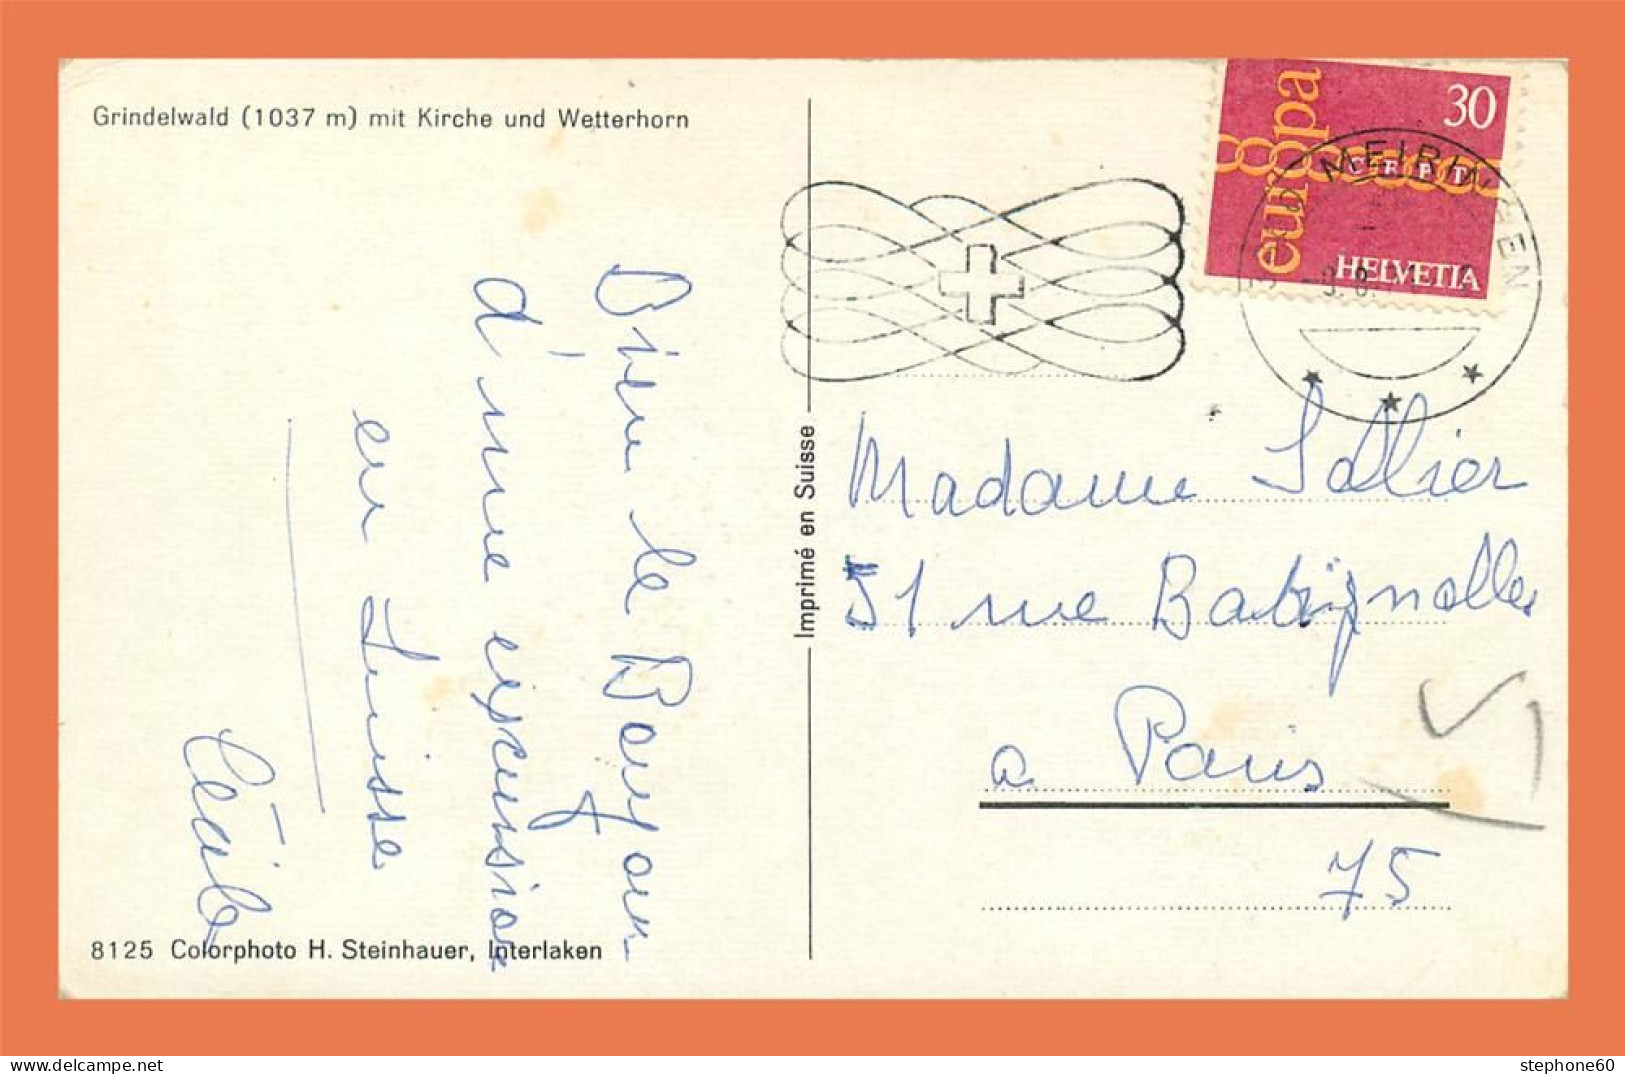 Grindelwald (1037 m) mit Kirche und Wetterhorn
Bien le Bonjour
d'une excursion
en Suisse
8125 Colorphoto H. Steinhauer, Interlaken
Imprimé en Suisse
europa
30
CEPT
HELVETIA
MEIRINGEN
Madame Sallier
51 rue Batignolles
a Paris
75
stephone60